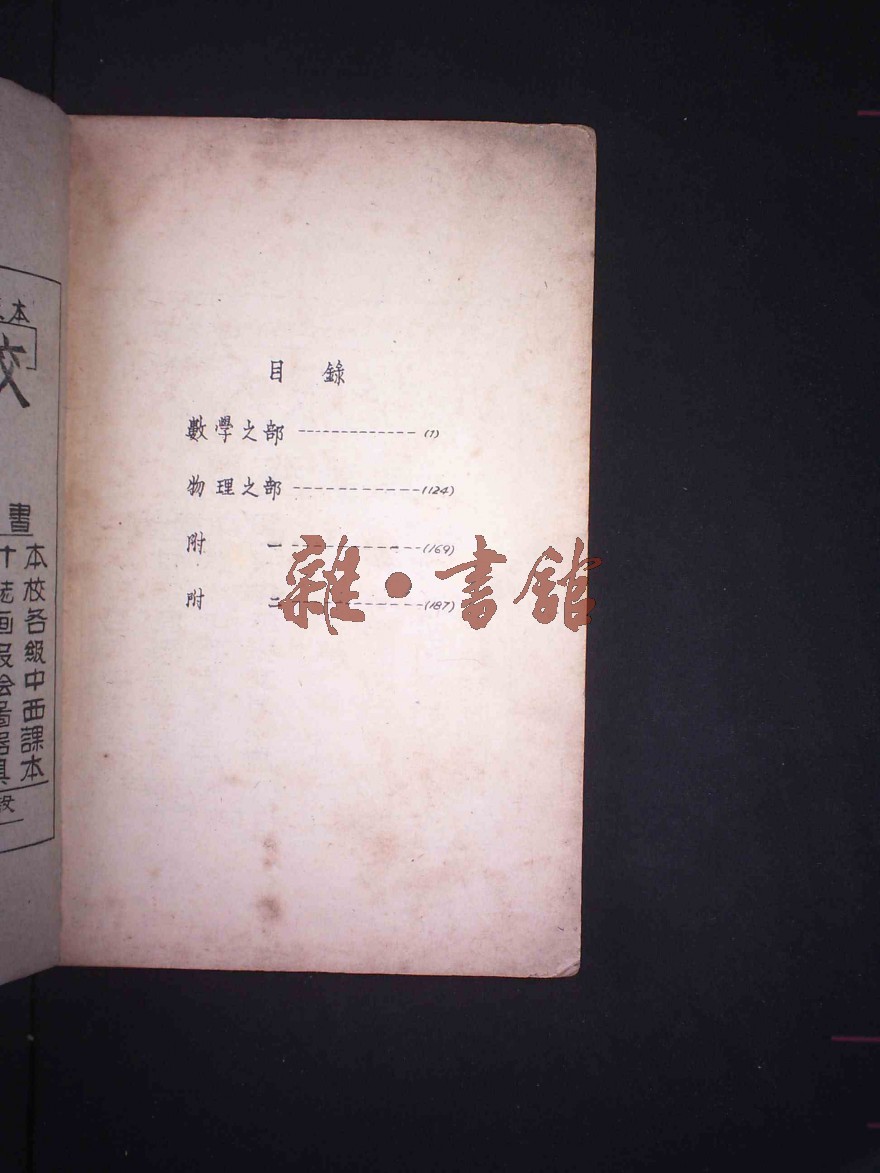 目 錄
數學之部 ------------- (1)
物理之部 ------------ (124)
附 一 ------------ (169)
附 二 ------------ (187)
雜·書館
本
校
書
本校各級中西課本